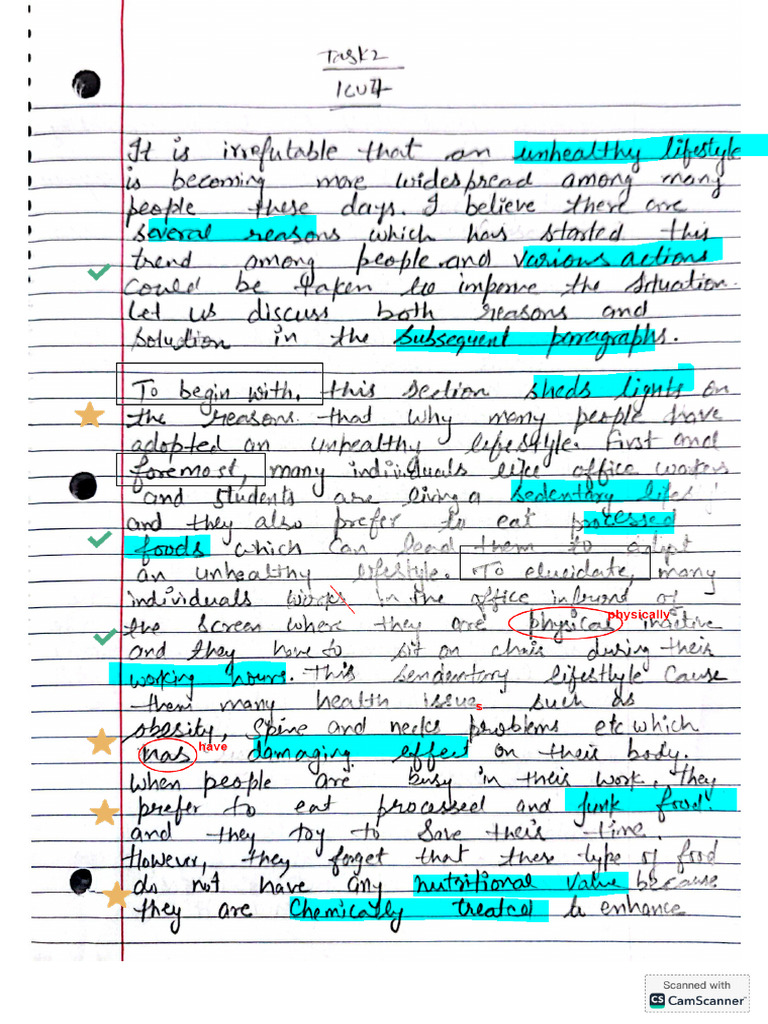 Task2
It is irrefutable that an unhealthy lifestyle
is becoming more widespread among many
people these days. I believe there are
several reasons which has started this
trend among people and various actions
could be taken to improve the situation.
Let us discuss both reasons and
solution in the subsequent paragraphs.
To begin with, this section sheds lights on
the reasons that why many people have
adopted an unhealthy lifestyle. First and
foremost, many individuals like office workers
and students are living a sedentary life
and they also prefer to eat processed
foods which can lead them to adopt
an unhealthy lifestyle. To elucidate, many
individuals works in the office infront of
the screen where they are physical physically inactive
and they have to sit on chair during their
working hours. This sendentary lifestlyle cause
them many health issue s such as
obesity, spine and necks problems etc which
has have damaging effect on their body.
When people are busy in their work, they
prefer to eat processed and junk food.
and they try to save their time.
However, they forget that these type of food
do not have any nutritional value because
they are chemically treated to enhance
Scanned with
CS CamScanner